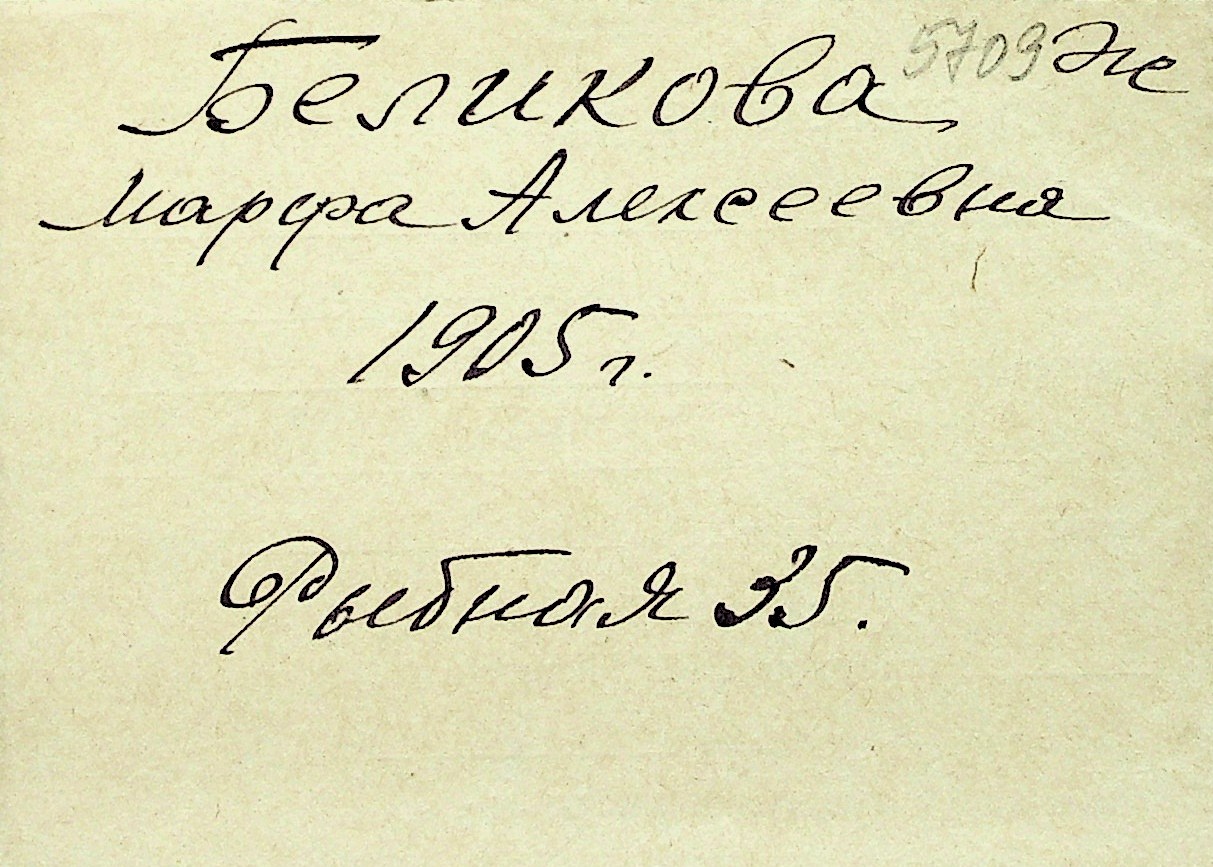 Беликова 5709 Ж
Марфа Алексеевна
1905 г.
Рыбная 35.